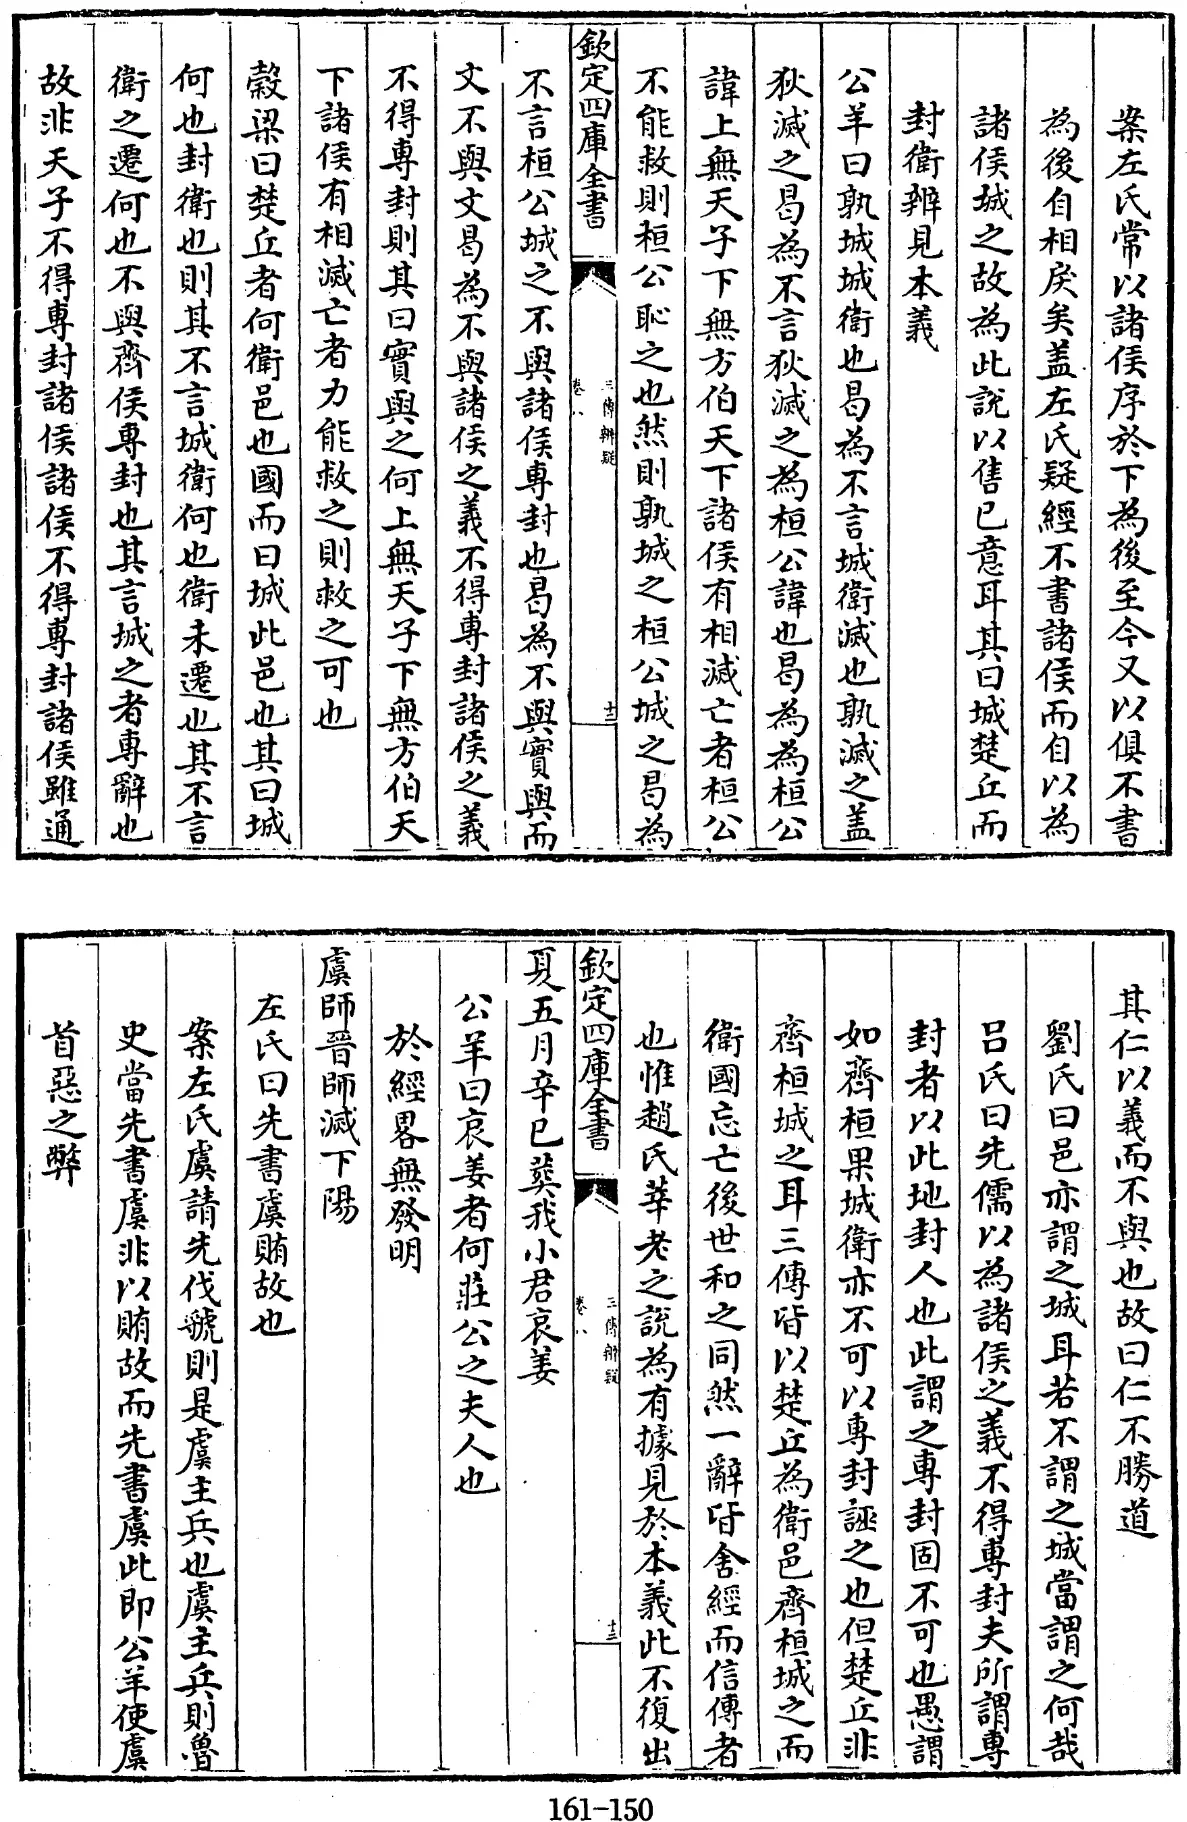 案左氏常以諸侯序於下為後至今又以俱不書
為後自相戾矣盖左氏疑經不書諸侯而自以為
諸侯城之故為此說以售已意耳其曰城楚丘而
封衛辨見本義
公羊曰孰城城衛也曷為不言城衛滅也孰滅之盖
狄滅之曷為不言狄滅之為桓公諱也曷為為桓公
諱上無天子下無方伯天下諸侯有相滅亡者桓公
不能救則桓公恥之也然則孰城之桓公城之曷為
欽定四庫全書
三傳辨疑
卷八
十二
不言桓公城之不與諸侯專封也曷為不與實與而
文不與文曷為不與諸侯之義不得專封諸侯之義
不得專封則其曰實與之何上無天子下無方伯天
下諸侯有相滅亡者力能救之則救之可也
穀梁曰楚丘者何衛邑也國而曰城此邑也其曰城
何也封衛也則其不言城衛何也衛未遷也其不言
衛之遷何也不與齊侯專封也其言城之者專辭也
故非天子不得專封諸侯諸侯不得專封諸侯雖通
其仁以義而不與也故曰仁不勝道
劉氏曰邑亦謂之城耳若不謂之城當謂之何哉
吕氏曰先儒以為諸侯之義不得專封夫所謂專
封者以此地封人也此謂之專封固不可也愚謂
如齊桓果城衛亦不可以專封誣之也但楚丘非
齊桓城之耳三傳皆以楚丘為衛邑齊桓城之而
衛國忘亡後世和之同然一辭皆舍經而信傳者
也惟趙氏莘老之說為有據見於本義此不復出
欽定四庫全書
三傳辨疑
卷八
十三
夏五月辛巳葬我小君哀姜
公羊曰哀姜者何莊公之夫人也
於經畧無發明
虞師晉師滅下陽
左氏曰先書虞賄故也
案左氏虞請先伐虢則是虞主兵也虞主兵則魯
史當先書虞非以賄故而先書虞此即公羊使虞
首惡之弊
161-150